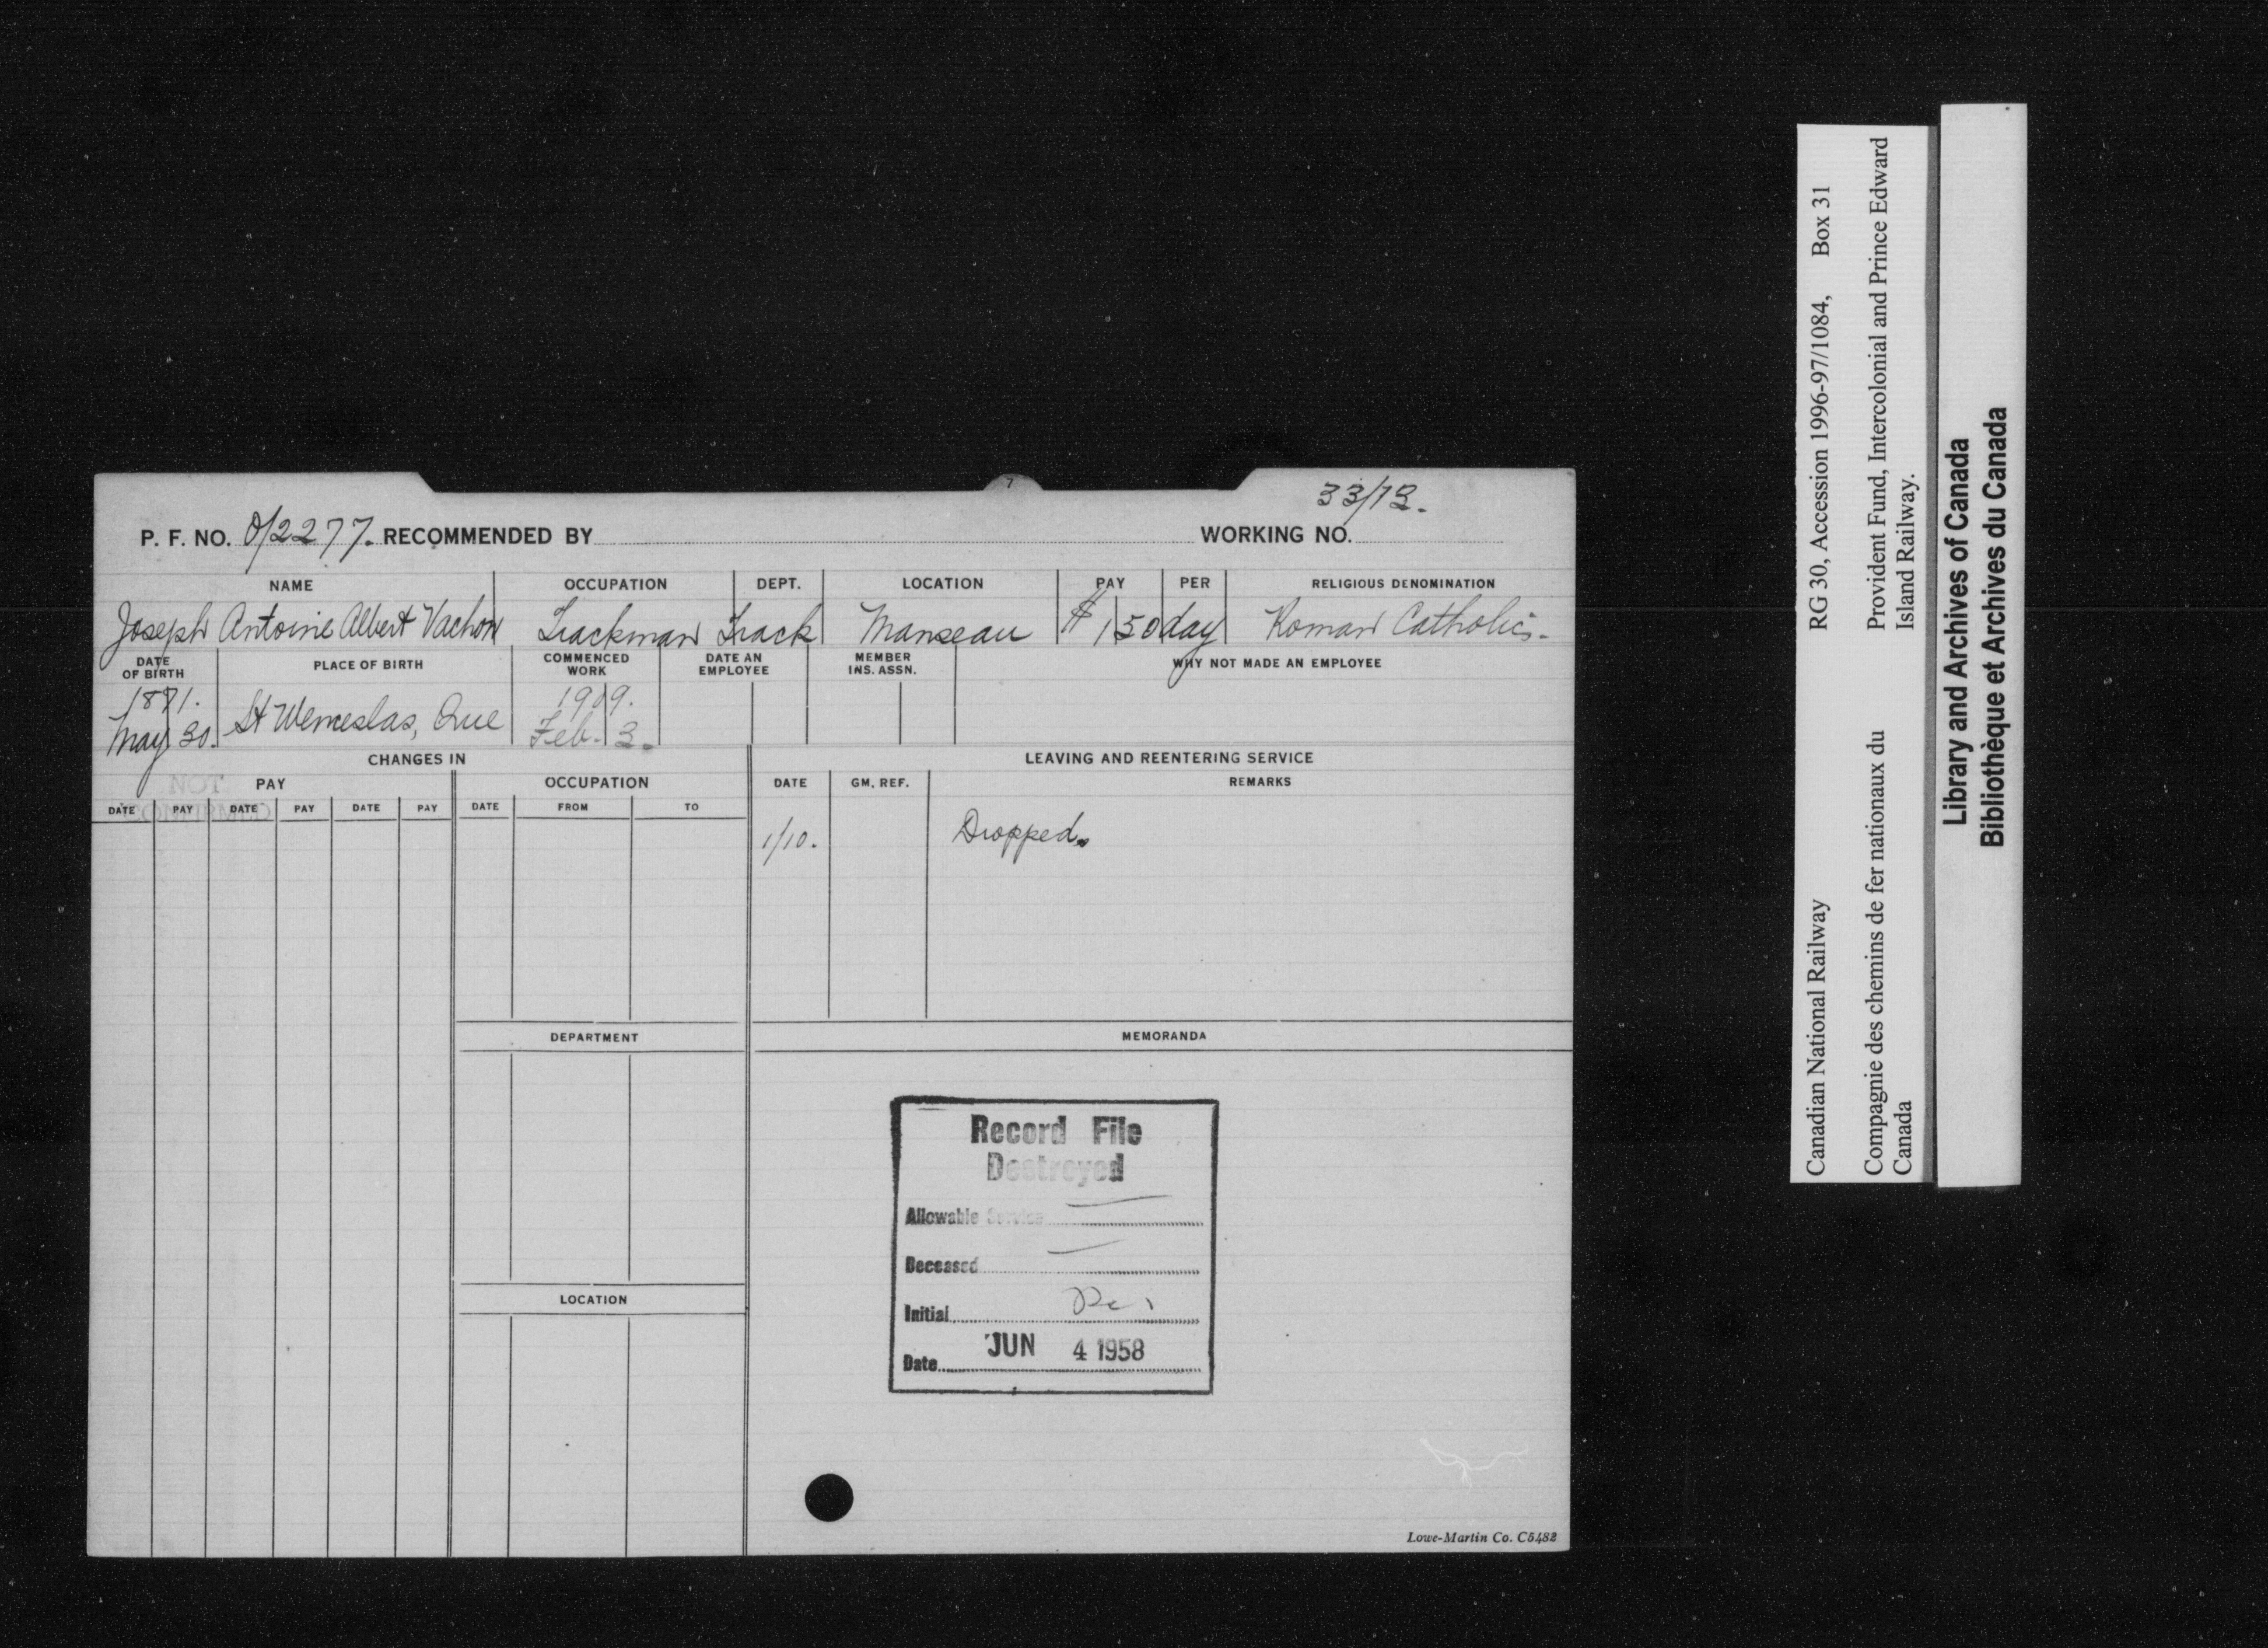 33/13.
P. F. NO. 0/2277. RECOMMENDED BY WORKING NO.
NAME OCCUPATION DEPT. LOCATION PAY PER RELIGIOUS DENOMINATION
Joseph Antoine Albert Vachon Trackman Track Manseau $1 50 day Roman Catholic.
DATE OF BIRTH PLACE OF BIRTH COMMENCED WORK DATE AN EMPLOYEE MEMBER INS. ASSN. WHY NOT MADE AN EMPLOYEE
1891. 1909.
May 30. St Wenceslas, Que Feb. 3.
CHANGES IN LEAVING AND REENTERING SERVICE
NOT
PAY OCCUPATION DATE GM. REF. REMARKS
DATE PAY DATE PAY DATE PAY DATE FROM TO
1/10. Dropped.
DEPARTMENT MEMORANDA
Record File
Destroyed
Allowable Service
Deceased
Initial
Date JUN 4 1958
LOCATION
Lowe-Martin Co. C5482
Canadian National Railway RG 30, Accession 1996-97/1084, Box 31
Compagnie des chemins de fer nationaux du Provident Fund, Intercolonial and Prince Edward
Canada Island Railway.
Library and Archives of Canada
Bibliothèque et Archives du Canada